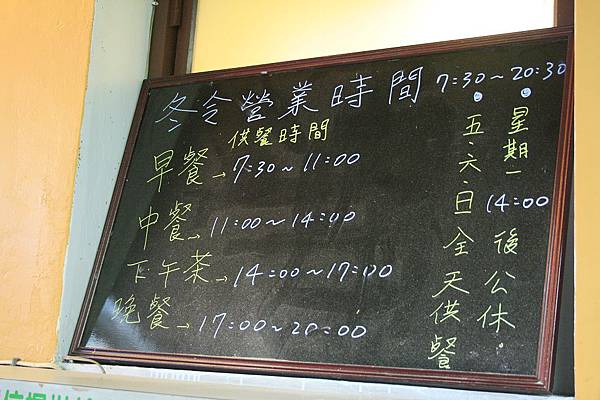 冬令營業時間 7:30~20:30
供餐時間
早餐→7:30~11:00
中餐→11:00~14:00
下午茶→14:00~17:00
晚餐→17:00~20:00
星期一14:00後公休
五.六.日全天供餐